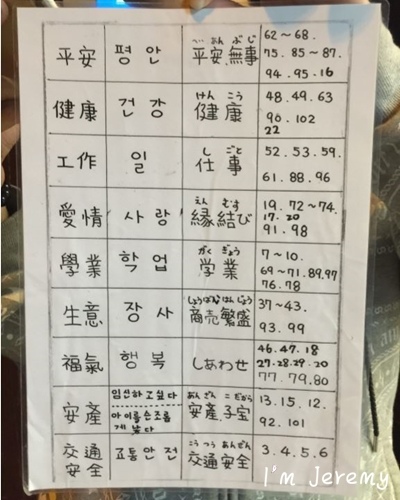 平安 평안 へいあんぶじ 62～68.
平安無事 75.85～87.
94.95.16
健康 건강 けんこう 48.49.63
健康 90.102
22
工作 일 しごと 52.53.59.
仕事 61.88.96
愛情 사랑 えんむす 19.72～74.
縁結び 17.20
91.98
學業 학업 がくぎょう 7～10.
学業 69～71.89.97
76.78
生意 장사 しょうばいはんじょう 37～43.
商売繁盛 93.99
福氣 행복 しあわせ 46.47.18
27.28.29.20
77.79.80
安產 임신하고싶다 あんざんこだから 13.15.12.
아이를순조롭 安產子宝 92.101
게낳다
交通 교통안전 こうつうあんぜん 3.4.5.6
安全 交通安全
I'm Jeremy